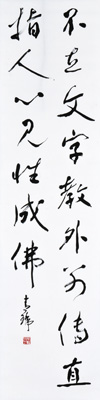 不立文字教外別傳直
指人心見性成佛